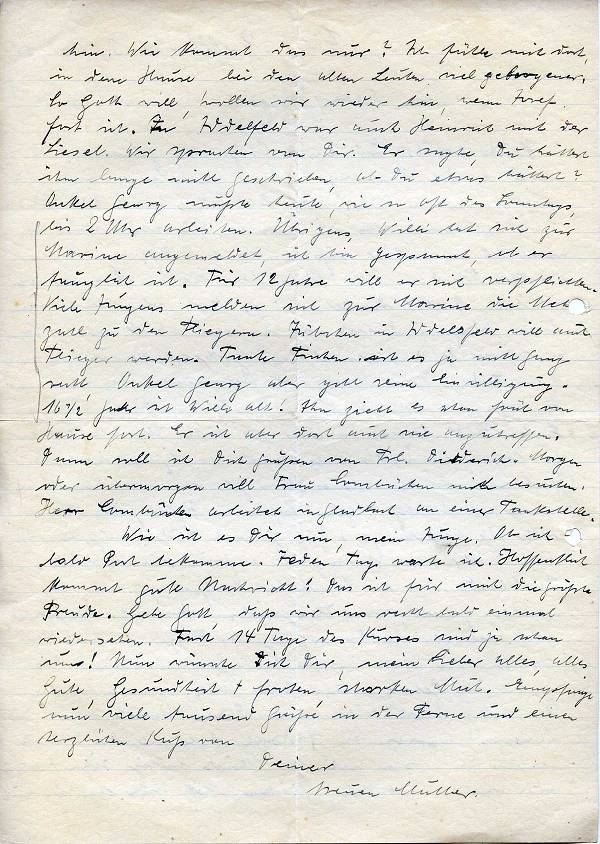 hin. Wie kommt das nur? Ich fühle mich dort,
in dem Hause bei den alten Leuten viel geborgener.
So Gott will, wollen wir wieder hin, wenn Josef
fort ist. In Idelfeld war auch Heinrich mit der
Liesel. Wir sprachen von Dir. Er sagte, Du hättest
ihm lange nicht geschrieben, ob Du etwas hättest?
Onkel Georg mußte heute, wie so oft des Sonntags
bis 2 Uhr arbeiten. Übrigens, Willi hat sich zur
Marine angemeldet, ich bin gespannt, ob er
tauglich ist. Für 12 Jahre will er sich verpflichten.
Viele Jungens melden sich zur Marine die Mehr
zahl zu den Fliegern. in will auch
Flieger werden. Tante ist es ja nicht ganz
recht Onkel Georg aber gibt seine Einwilligung.
16 1/2 Jahr ist Willi alt! Ihn zieht es schon früh von
Hause fort. Er ist aber dort auch nie anzutreffen.
Dann soll ich Dich grüßen von Frl. Diederich. Morgen
oder übermorgen will Frau mich besuchen.
Herr arbeitet in an einer Tankstelle.
Wie ist es Dir nun, mein Junge. Ob ich
bald Post bekomme. Jeden Tag warte ich. Hoffentlich
kommt gute Nachricht! Das ist für mich die größte
Freude. Gebe Gott, daß wir uns recht bald einmal
wiedersehen. 14 Tage des Kurses sind ja schon
um! Nun wünsche ich Dir, mein Lieber alles, alles
Gute, Gesundheit + frohen, starken Mut. Empfange
nun viele tausend Grüße in der Ferne und einen
herzlichen Kuß von
Deiner
treuen Mutter.